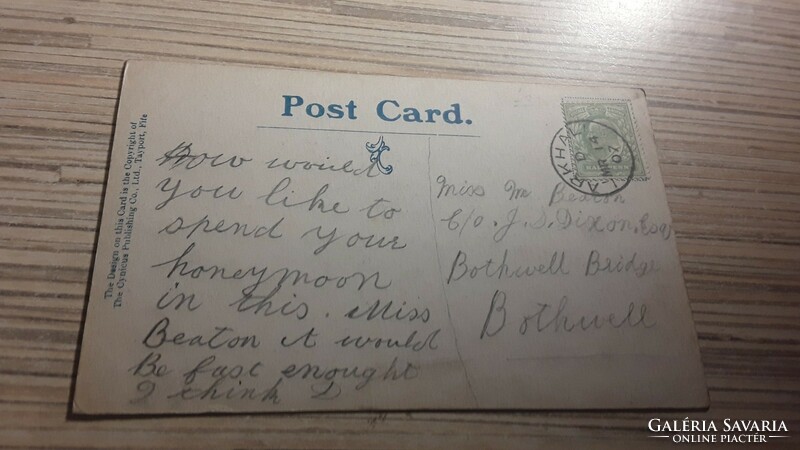 Post Card.
The Design on this Card is the Copyright of
The Cynicus Publishing Co., Ltd., Tayport, Fife
How would
you like to
spend your
honeymoon
in this. Miss
Beaton it would
Be fast enought
I think D
LARKHALL
MR 14
07
Miss M. Beaton
C/o. J. S. Dixon. Esq
Bothwell Bridge
Bothwell
GALÉRIA SAVARIA
ONLINE PIACTÉR